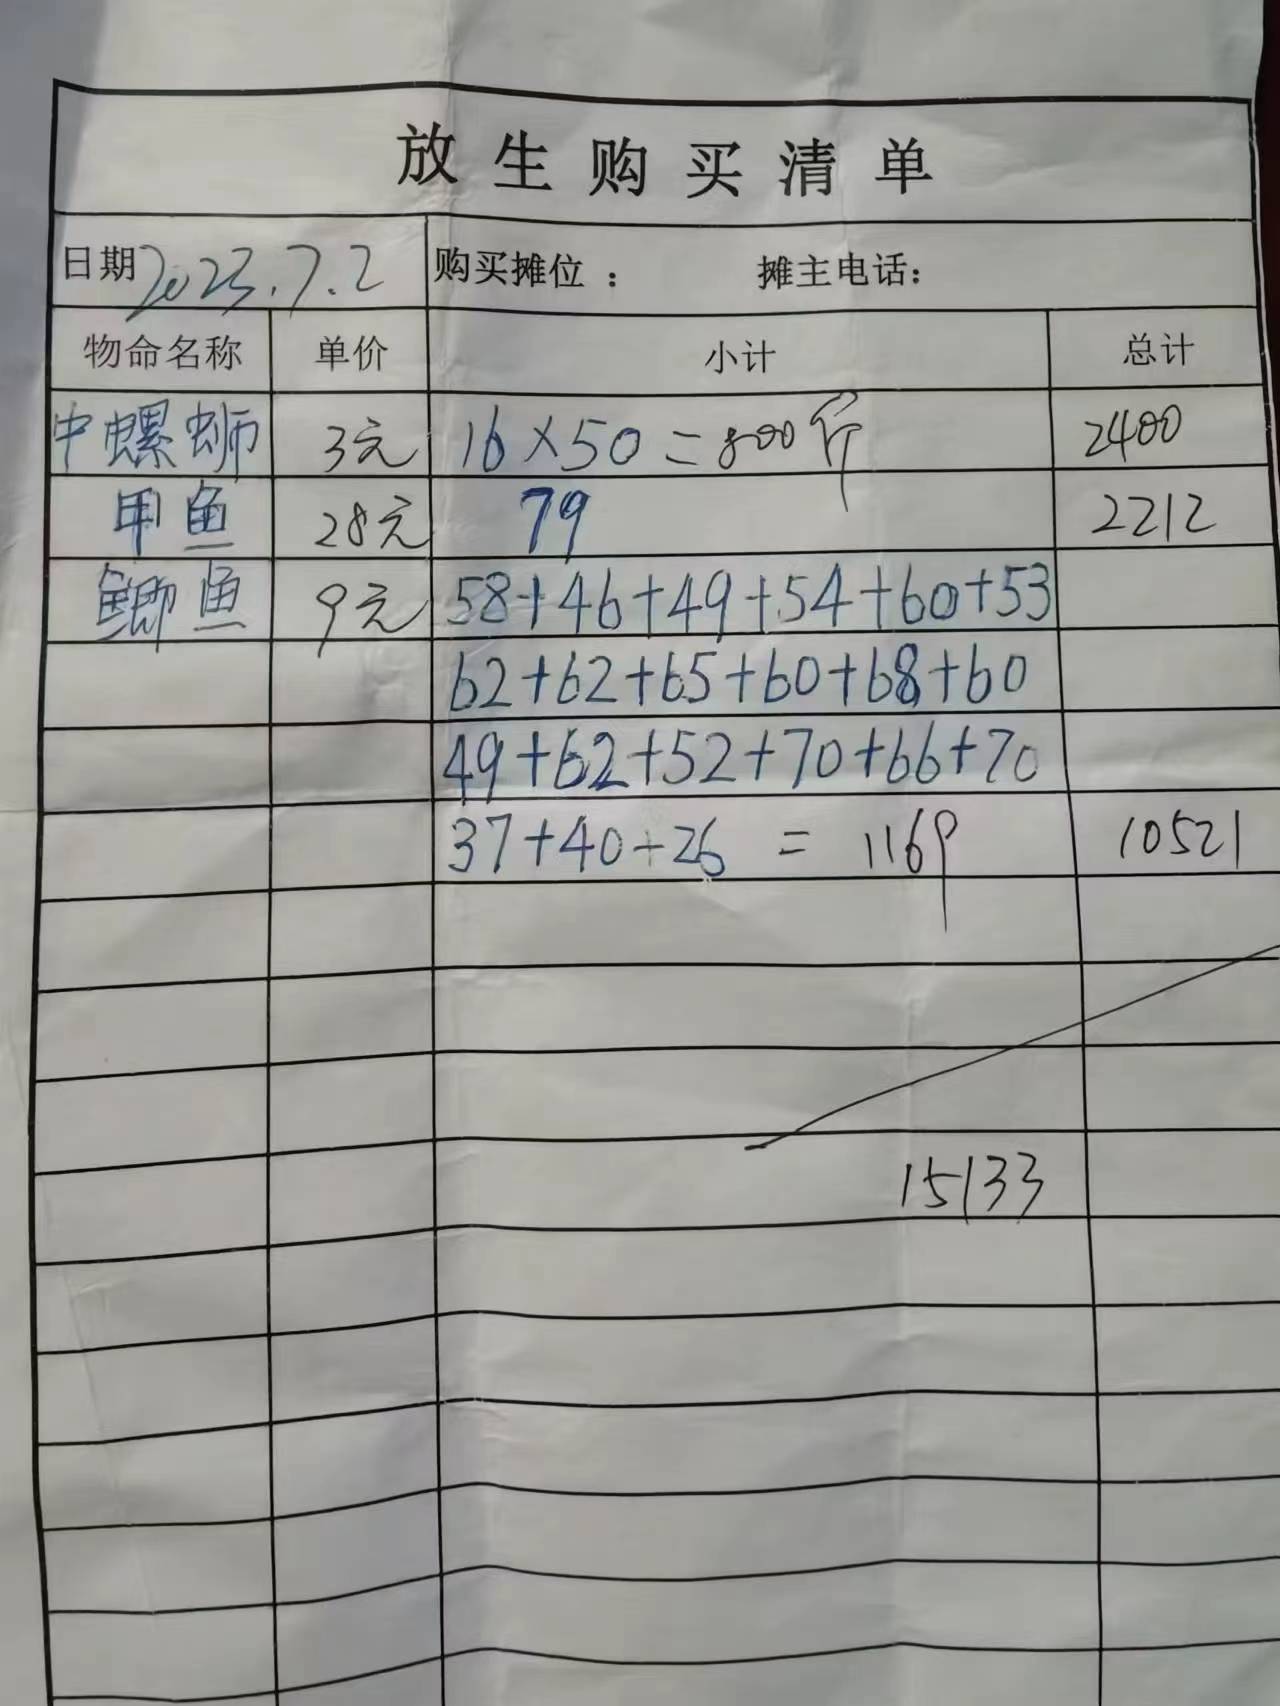 放生购买清单
日期2023.7.2 购买摊位： 摊主电话：
物命名称 单价 小计 总计
中螺蛳 3元 16×50=800斤 2400
甲鱼 28元 79 2212
鲫鱼 9元 58+46+49+54+60+53
62+62+65+60+68+60
49+62+52+70+66+70
37+40+26 = 1169 10521
15133